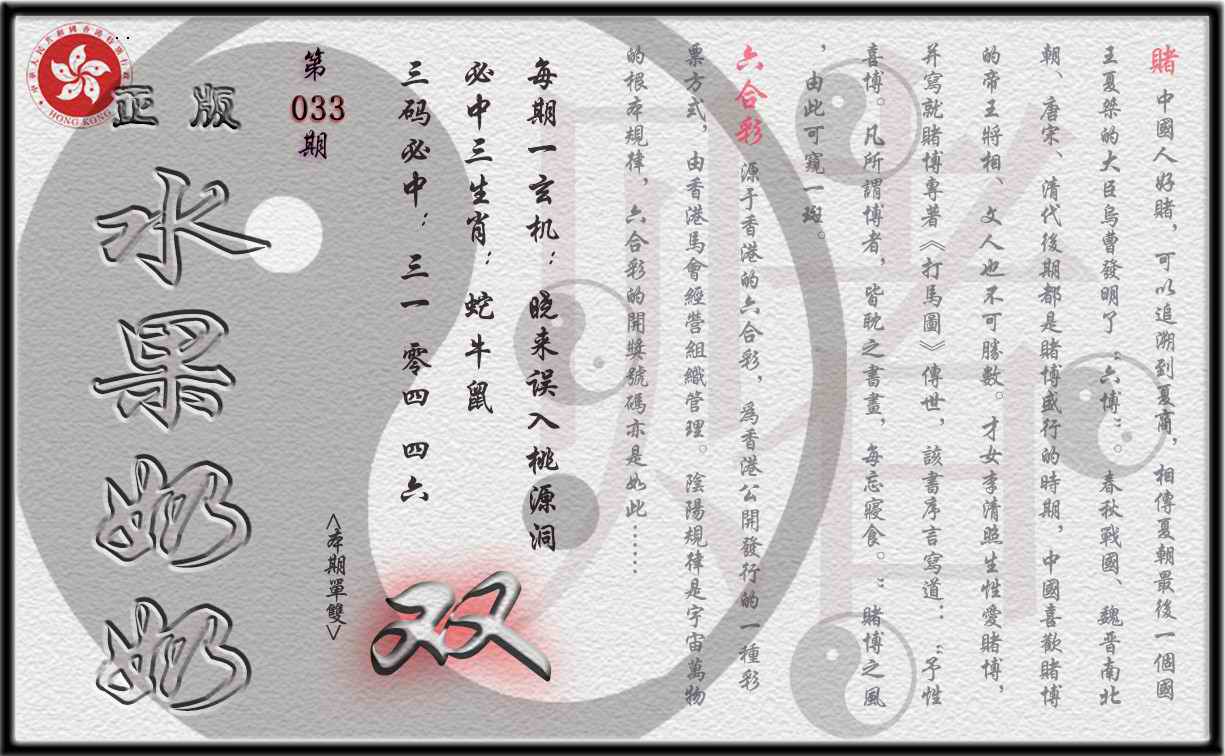 賭 中國人好賭，可以追溯到夏商，相傳夏朝最後一個國
王夏桀的大臣烏曹發明了“六博”。春秋戰國、魏晋南北
朝、唐宋、清代後期都是賭博盛行的時期，中國喜歡賭博
的帝王將相、文人也不可勝數。才女李清照生性愛賭博，
并寫就賭博專著《打馬圖》傳世，該書序言寫道：“予性
喜博。凡所謂博者，皆耽之晝，每忘寢食。”賭博之風
，由此可窺一斑。
六合彩 源于香港的六合彩，爲香港公開發行的一種彩
票方式，由香港馬會經營組織管理。陰陽規律是宇宙萬物
的根本規律，六合彩的開獎號碼亦是如此……
每期一玄机：晓来误入桃源洞
必中三生肖：蛇牛鼠
三码必中：三一 零四 四六
第
033
期
<本期單雙>
双
正版
水果奶奶
HONG KONG